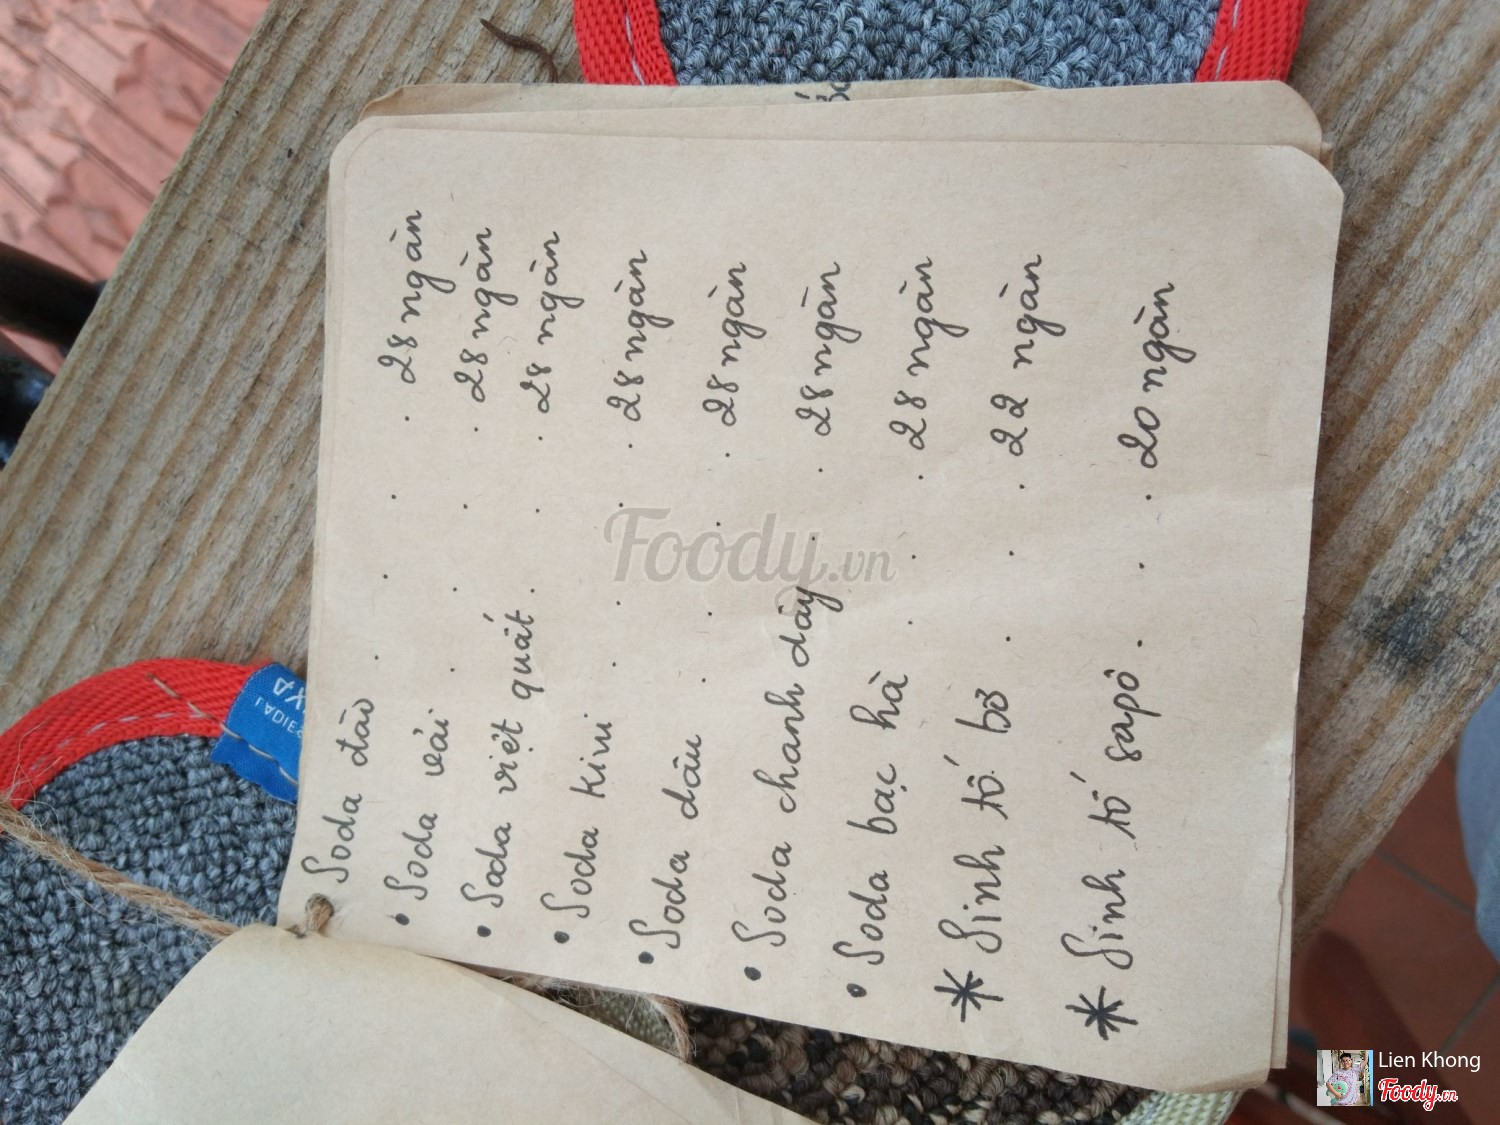 Soda đào . . . . 28 ngàn
• Soda vải . . . . 28 ngàn
• Soda việt quất . . . 28 ngàn
• Soda kiwi . . . . 28 ngàn
• Soda dâu . . . . 28 ngàn
• Soda chanh dây . . 28 ngàn
• Soda bạc hà . . . 28 ngàn
* Sinh tố bơ . . . 22 ngàn
* Sinh tố sapô . . . 20 ngàn
Foody.vn
Lien Khong
Foody.vn